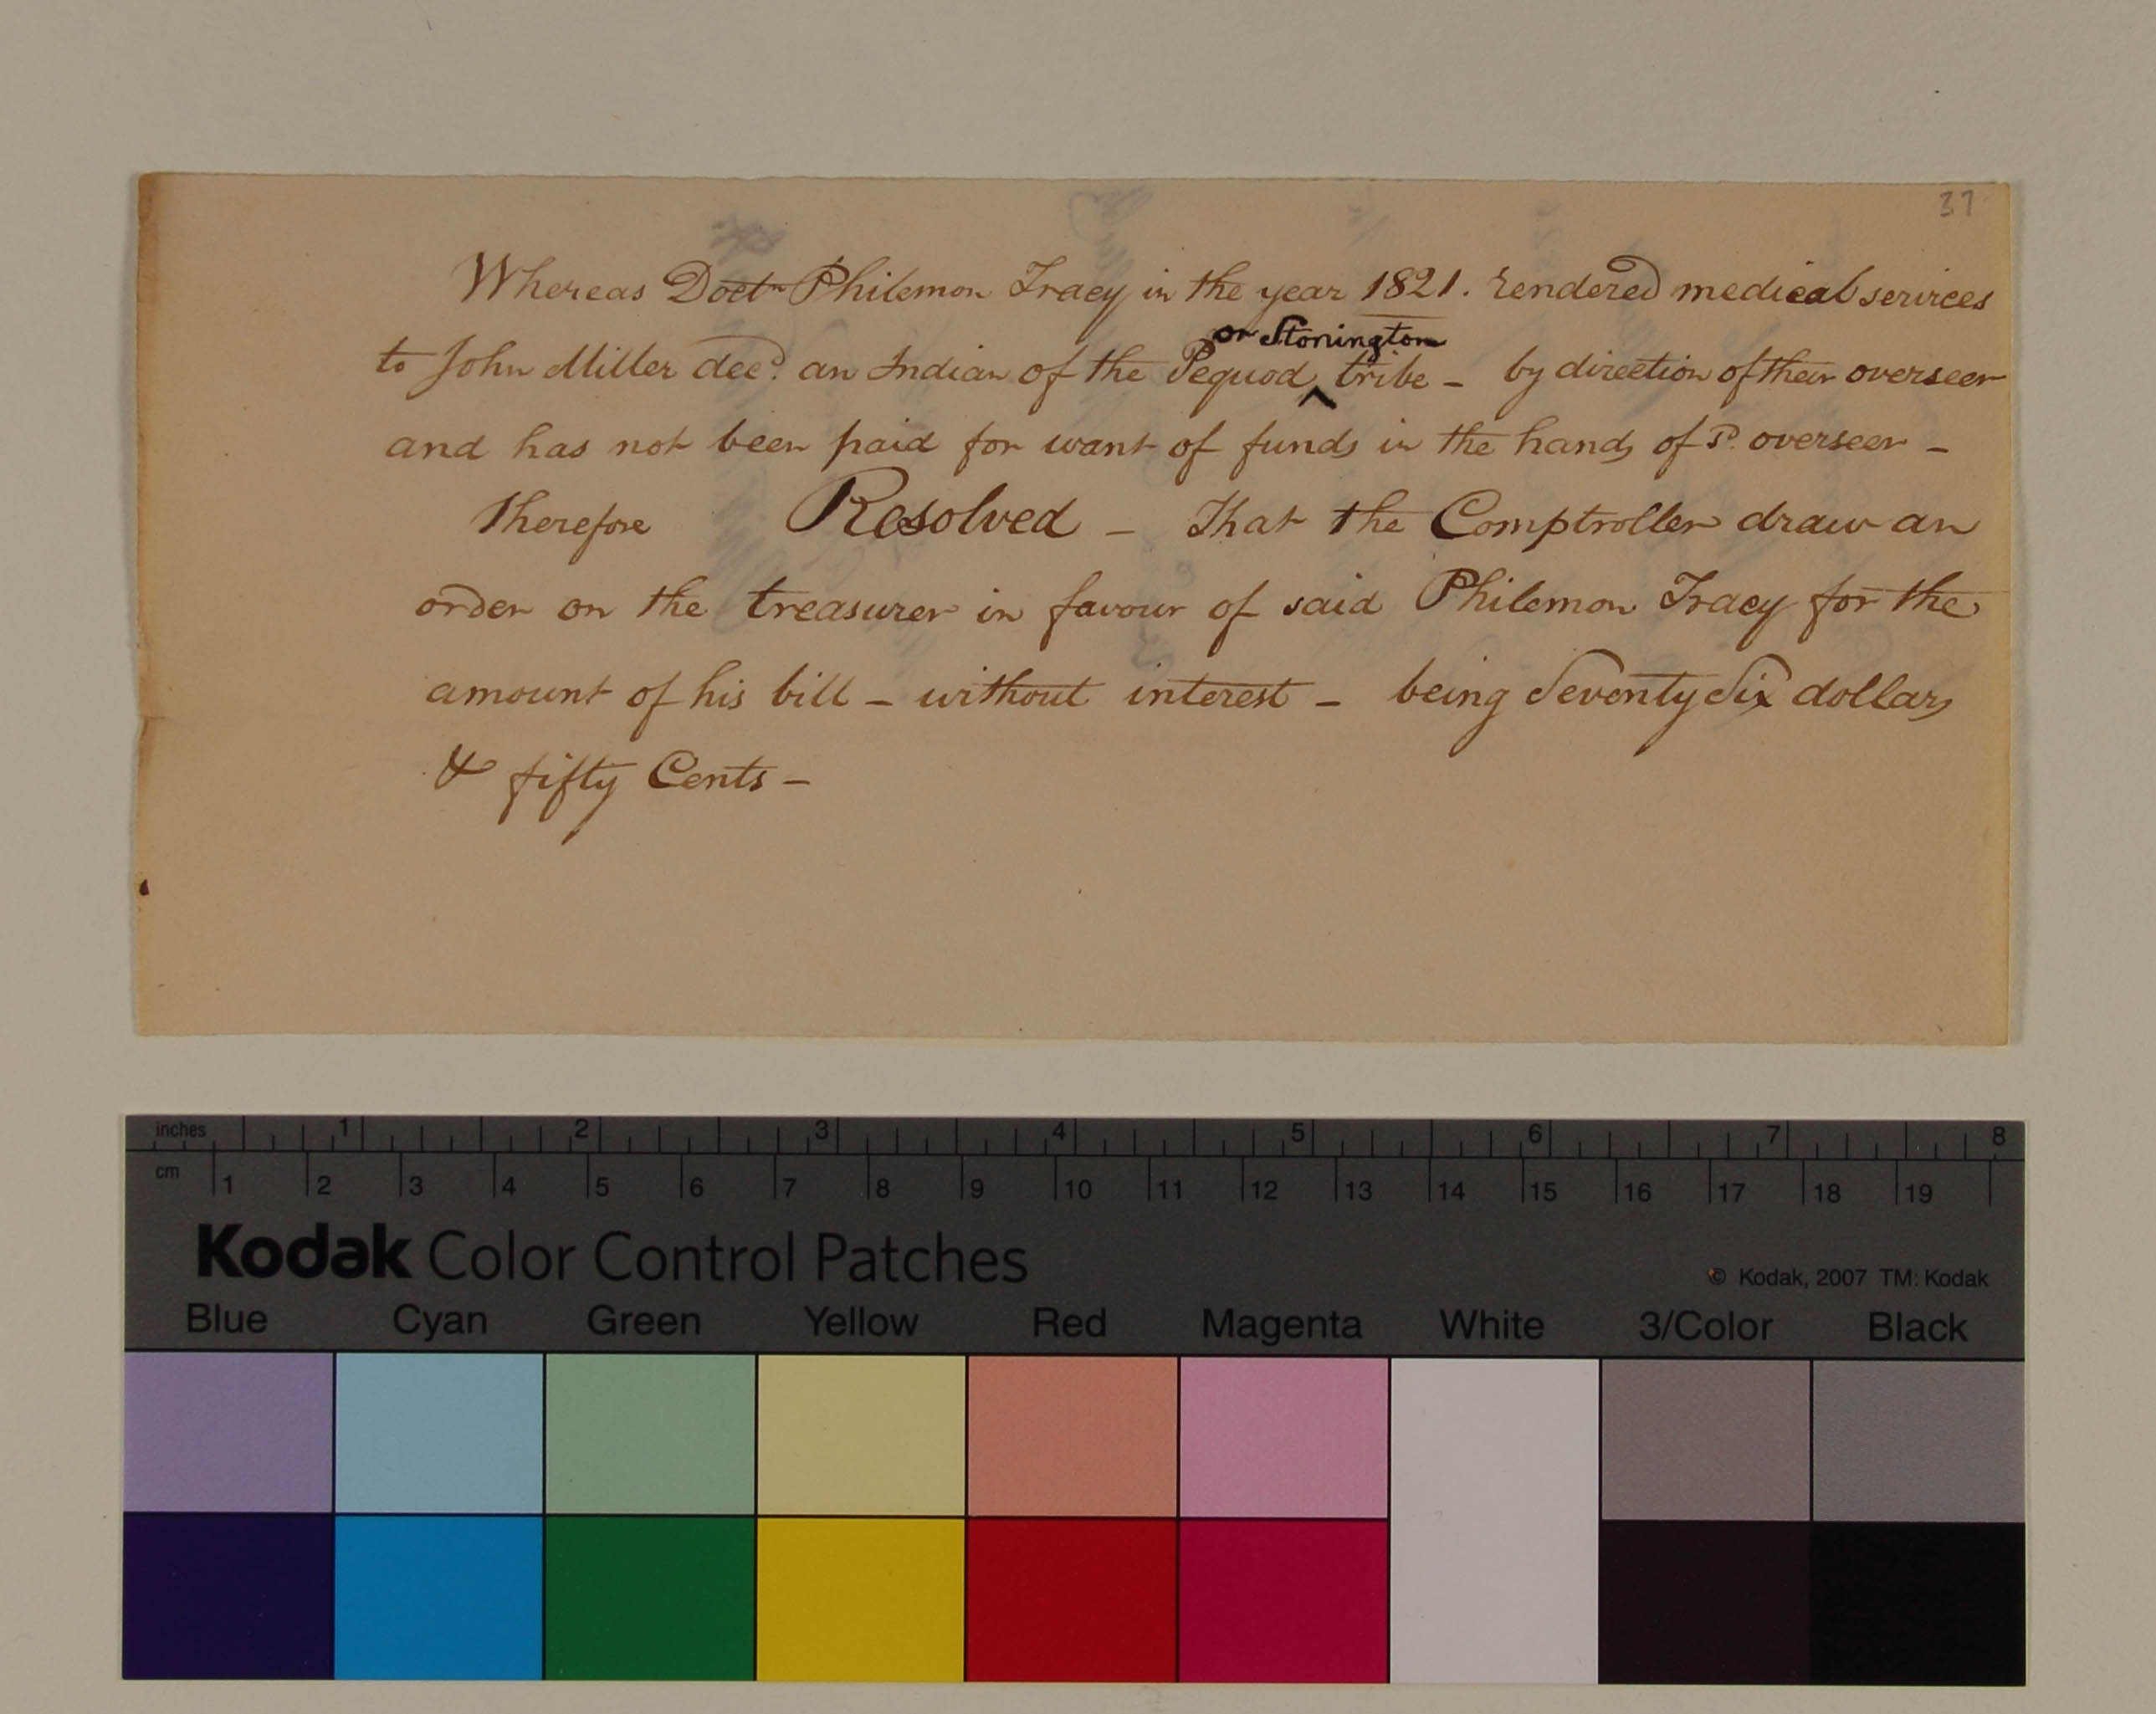 37
Whereas Doctr Philemon Tracy in the year 1821. rendered medical services
or Stonington
to John Miller decd. an Indian of the Pequod ^ tribe - by direction of their overseer
and has not been paid for want of funds in the hands of sd. overseer -
Therefore Resolved - That the Comptroller draw an
order on the treasurer in favour of said Philemon Tracy for the
amount of his bill - without interest - being Seventy Six dollars
& fifty Cents -
inches 1 2 3 4 5 6 7 8
cm 1 2 3 4 5 6 7 8 9 10 11 12 13 14 15 16 17 18 19
Kodak Color Control Patches
© Kodak, 2007 TM: Kodak
Blue Cyan Green Yellow Red Magenta White 3/Color Black